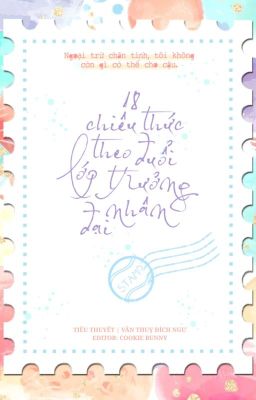 Ngoại trừ chân tình, tôi không
còn gì có thể cho cậu.
18
chiêu thức
theo đuổi
lớp trưởng
đại nhân
STAMP
TIỂU THUYẾT | VĂN THỤY ĐÍCH NGƯ
EDITOR: COOKIE BUNNY